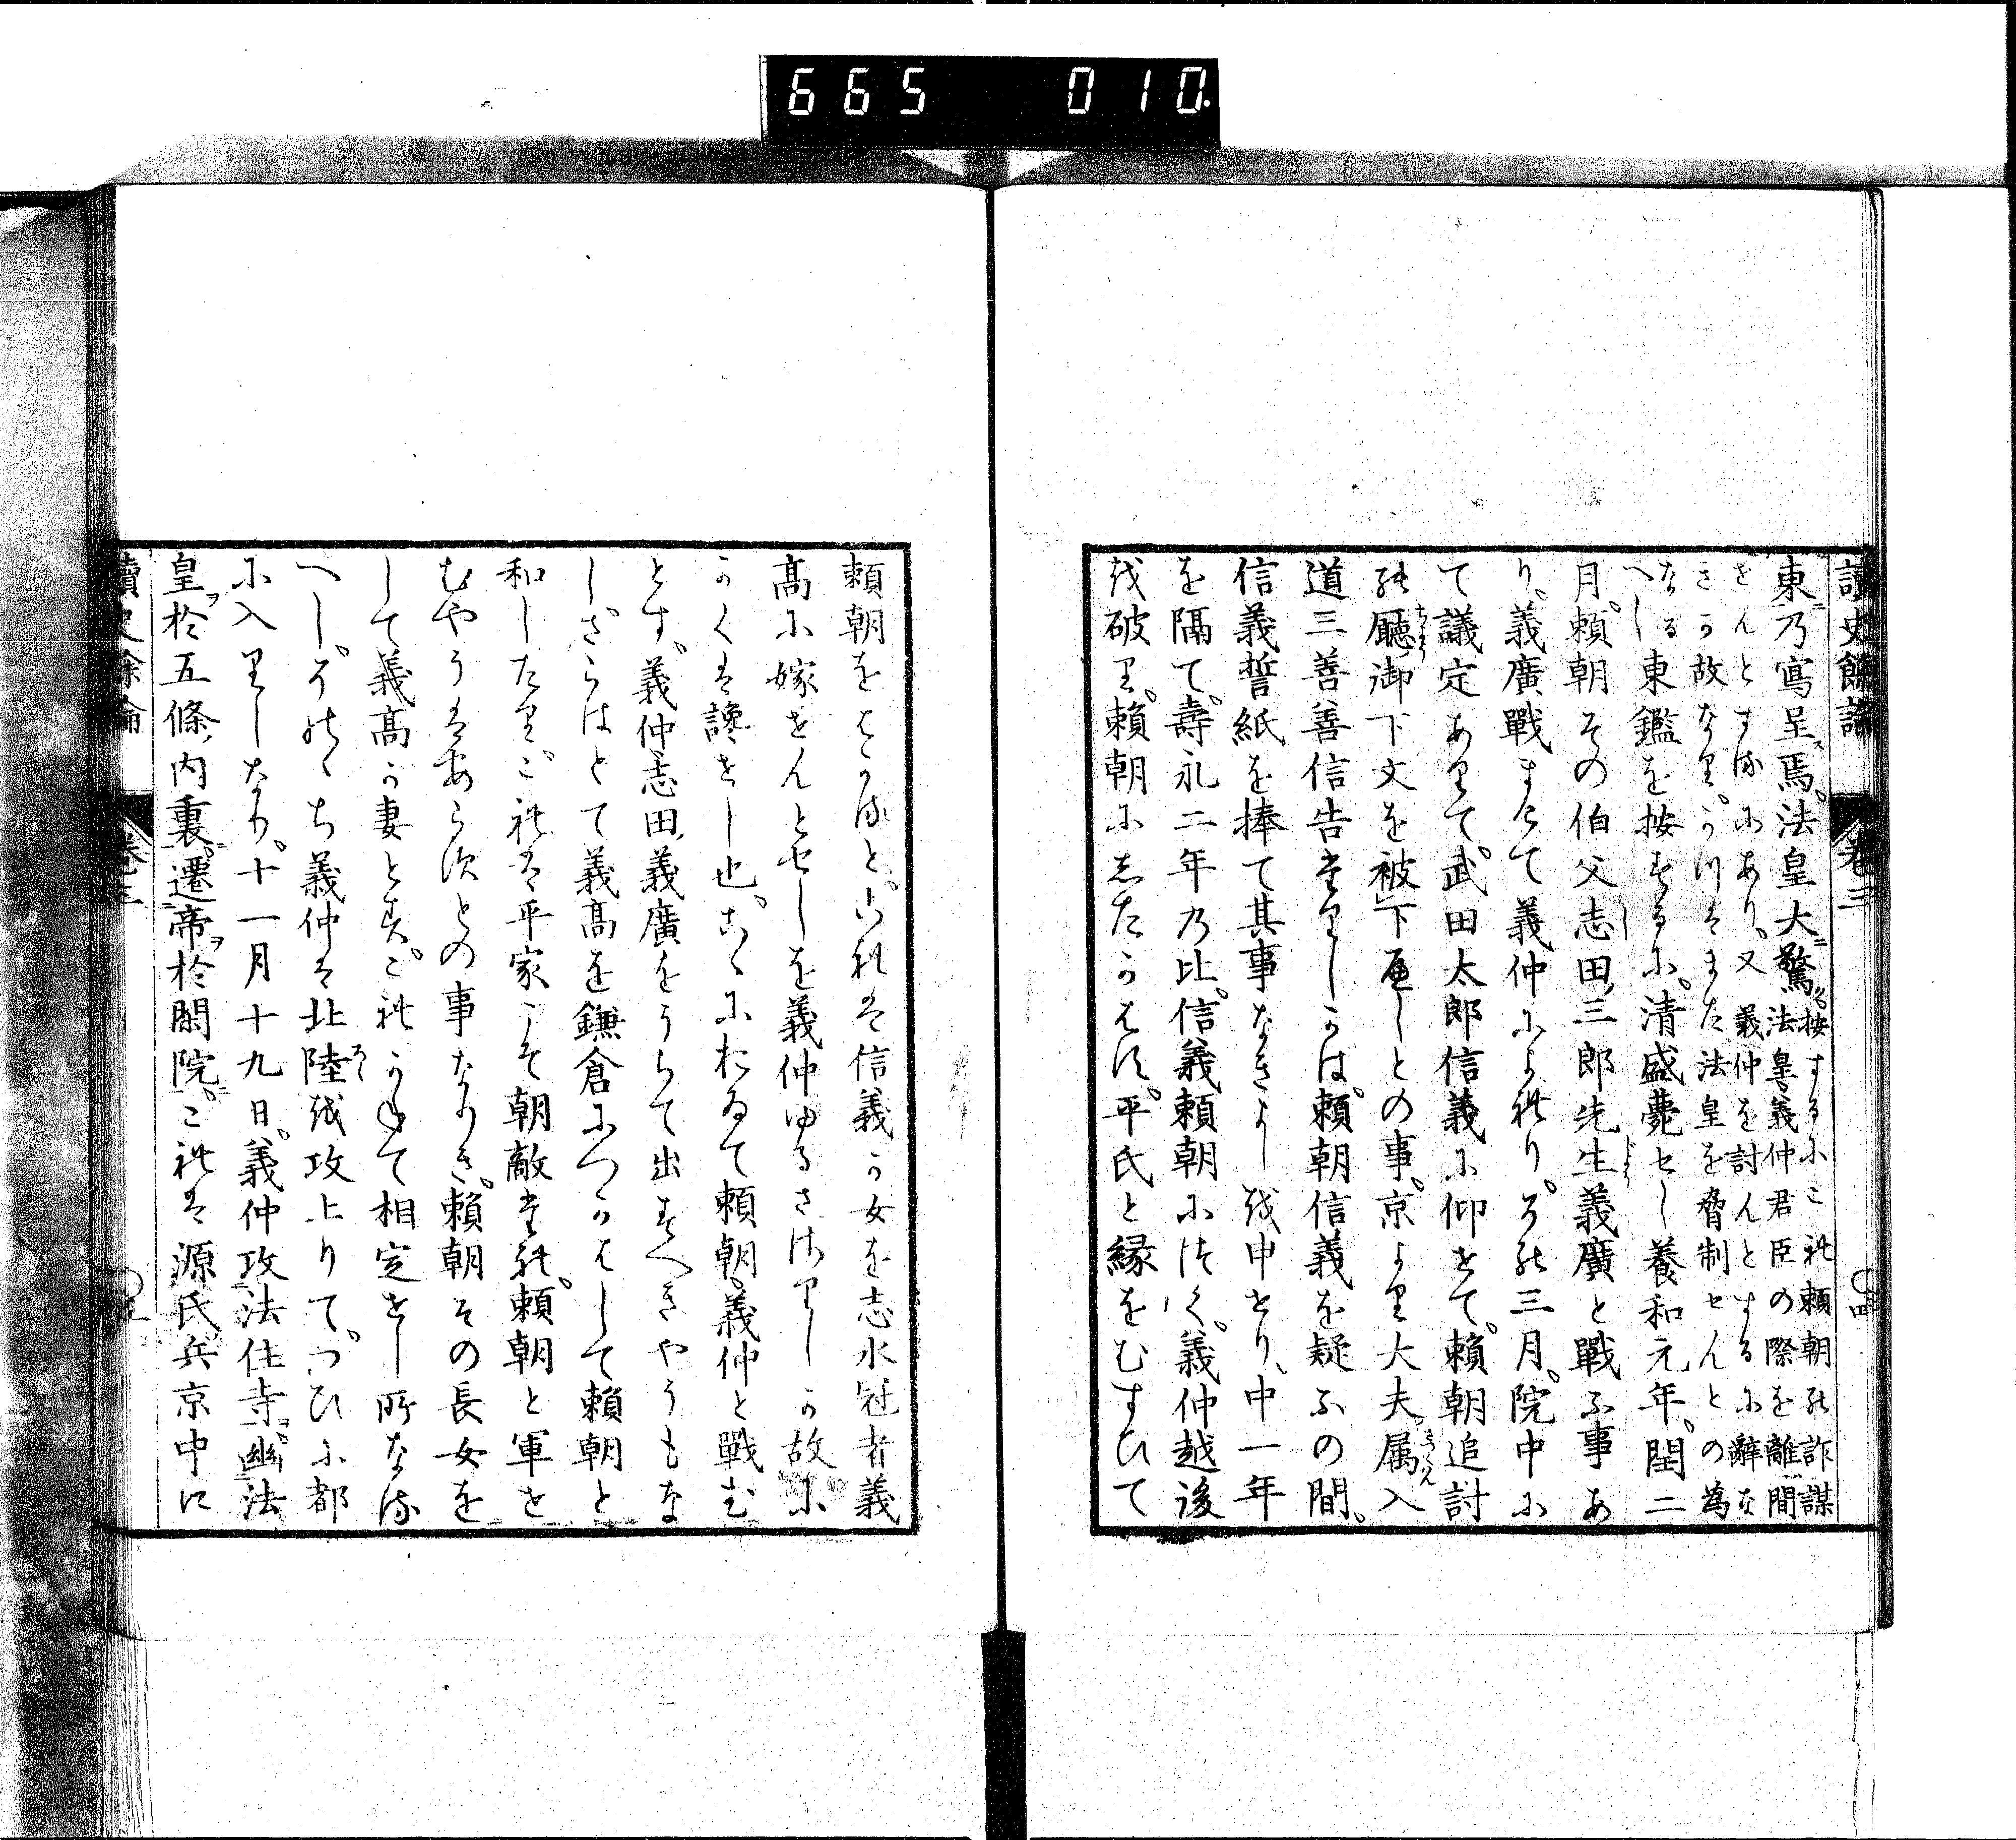 665 010.
讀史餘論 卷三 〇四
東乃寫呈焉。法皇大驚。按するにこれ頼朝の詐謀
法皇義仲君臣の際を離間
せんとするにあり。又義仲を討んとするに辭な
きか故なり。かつはまた法皇を脅制せんとの為
なるへし東鑑を按するに。清盛薨せし養和元年。閏二
月。頼朝その伯父志田三郎先生義廣と戰ふ事あ
り。義廣戰まけて義仲によれり。その三月。院中に
て議定ありて。武田太郎信義に仰せて。頼朝追討
の廳御下文を被下へしとの事。京より大夫属入
道三善善信告たりしかは。頼朝信義を疑ふの間。
信義誓紙を捧て其事なきよしを申せり。中一年
を隔て。壽永二年乃比。信義頼朝につく。義仲越後
を破り。頼朝にしたかはす。平氏と縁をむすひて
頼朝をはかると。これは信義か女を志水冠者義
高に嫁せんとせしを義仲ゆるさゝりしか故に
かくは讒せし也。こゝにおゐて頼朝。義仲と戰む
とす。義仲志田義廣をうちて出すへきやうもな
しさらはとて義高を鎌倉につかはして頼朝と
和したり。これは平家こそ朝敵たれ。頼朝と軍せ
むやうはあらすとの事なりき。頼朝その長女を
して義高か妻とす。これかねて相定せし所なる
へし。そのゝち義仲は北陸を攻上りて。つひに都
に入りしなり。十一月十九日。義仲攻法住寺。幽法
皇於五條内裏。遷帝於閑院。これは源氏兵京中に
讀史餘論 卷三